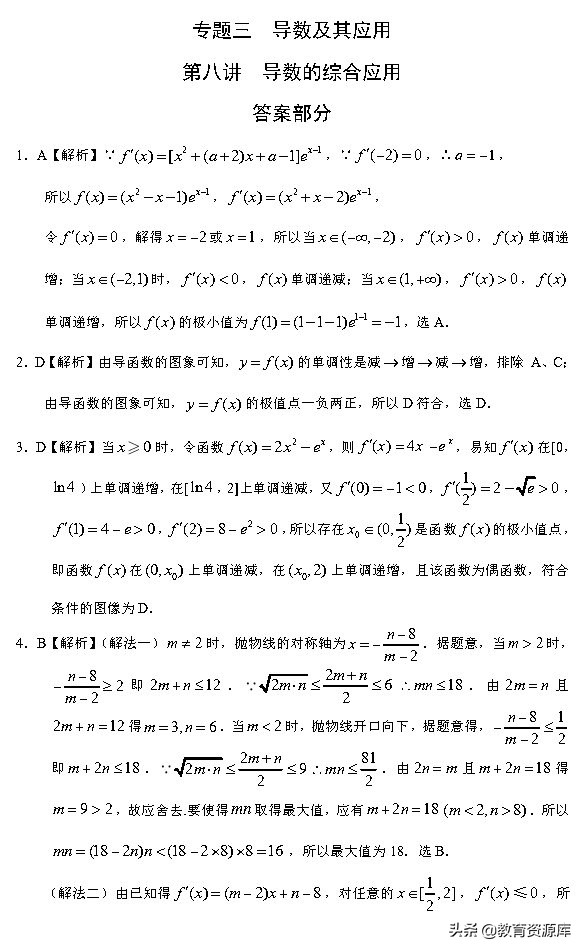 专题三 导数及其应用
第八讲 导数的综合应用
答案部分
1．A【解析】∵ f′(x)=[x²+(a+2)x+a−1]eˣ⁻¹，∵ f′(−2)=0，∴a=−1，
所以 f(x)=(x²−x−1)eˣ⁻¹，f′(x)=(x²+x−2)eˣ⁻¹，
令 f′(x)=0，解得 x=−2 或 x=1，所以当 x∈(−∞,−2)，f′(x)>0，f(x) 单调递
增；当 x∈(−2,1) 时，f′(x)<0，f(x) 单调递减；当 x∈(1,+∞)，f′(x)>0，f(x)
单调递增，所以 f(x) 的极小值为 f(1)=(1−1−1)e¹⁻¹=−1，选 A．
2．D【解析】由导函数的图象可知，y=f(x) 的单调性是减→增→减→增，排除 A、C；
由导函数的图象可知，y=f(x) 的极值点一负两正，所以 D 符合，选 D．
3．D【解析】当 x⩾0 时，令函数 f(x)=2x²−eˣ，则 f′(x)=4x−eˣ，易知 f′(x) 在[0，
ln4）上单调递增，在[ln4，2]上单调递减，又 f′(0)=−1<0，f′(1/2)=2−√e>0，
f′(1)=4−e>0，f′(2)=8−e²>0，所以存在 x₀∈(0,1/2) 是函数 f(x) 的极小值点，
即函数 f(x) 在 (0,x₀) 上单调递减，在 (x₀,2) 上单调递增，且该函数为偶函数，符合
条件的图像为 D．
4．B【解析】（解法一）m≠2 时，抛物线的对称轴为 x=−(n−8)/(m−2)．据题意，当 m>2 时，
−(n−8)/(m−2)≥2 即 2m+n≤12．∵√(2m·n)≤(2m+n)/2≤6 ∴mn≤18．由 2m=n 且
2m+n=12 得 m=3,n=6．当 m<2 时，抛物线开口向下，据题意得，−(n−8)/(m−2)≤1/2
即 m+2n≤18．∵√(2m·n)≤(2m+n)/2≤9 ∴mn≤81/2．由 2n=m 且 m+2n=18 得
m=9>2，故应舍去.要使得 mn 取得最大值，应有 m+2n=18 (m<2,n>8)．所以
mn=(18−2n)n<(18−2×8)×8=16，所以最大值为 18．选 B．
（解法二）由已知得 f′(x)=(m−2)x+n−8，对任意的 x∈[1/2,2]，f′(x)≤0，所
头条 @教育资源库